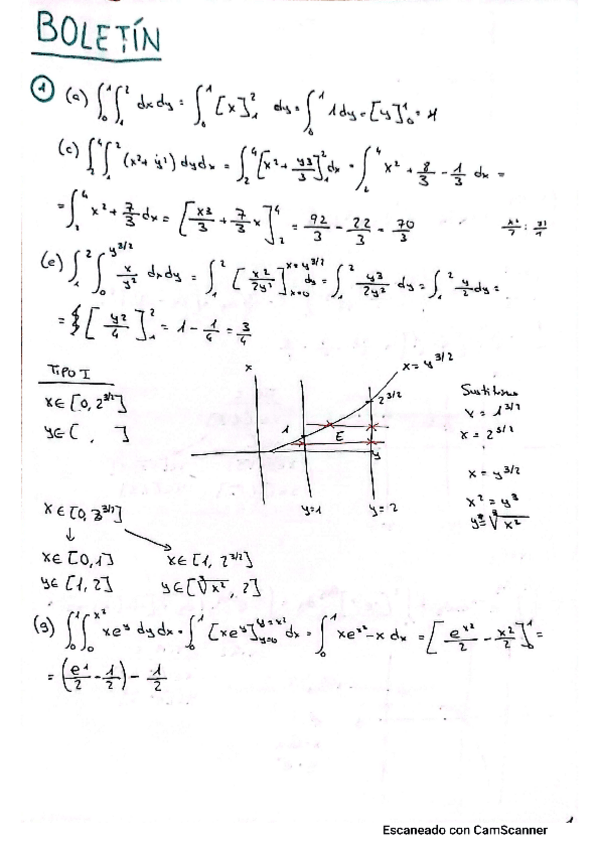 BOLETÍN
① (a) ∫₀¹ ∫₁² dx dy = ∫₀¹ [x]₁² dy = ∫₀¹ 1 dy = [y]₀¹ = 1
(c) ∫₂⁴ ∫₁² (x² + y²) dy dx = ∫₂⁴ [x² + y3/3]₁² dx = ∫₂⁴ x² + 8/3 - 1/3 dx =
= ∫₂⁴ x² + 7/3 dx = [x3/3 + 7/3 x]₂⁴ = 92/3 - 22/3 = 70/3
(e) ∫₁² ∫₀^{y3/2} x/y² dx dy = ∫₁² [x2/2y²]_{x=0}^{x=y3/2} dy = ∫₁² y3/2y² dy = ∫₁² y/2 dy =
= [y2/4]₁² = 1 - 1/4 = 3/4
TIPO I
x∈[0, 2^{3/2}]
y∈[ , ]
x
x = y^{3/2}
2^{3/2}
1
E
y
y=1
y=2
x = 1^{3/2}
x = 2^{3/2}
x = y^{3/2}
x² = y³
y = ∛x²
x∈[0, 2^{3/2}]
x∈[0,1]
x∈[1, 2^{3/2}]
y∈[1,2]
y∈[∛x², 2]
(g) ∫₀¹ ∫₀^{x²} xe^y dy dx = ∫₀¹ [xe^y]_{y=0}^{y=x²} dx = ∫₀¹ xe^{x²} - x dx = [e^{x²}/2 - x2/2]₀¹ =
= (e1/2 - 1/2) - 1/2
1
Escaneado con CamScanner